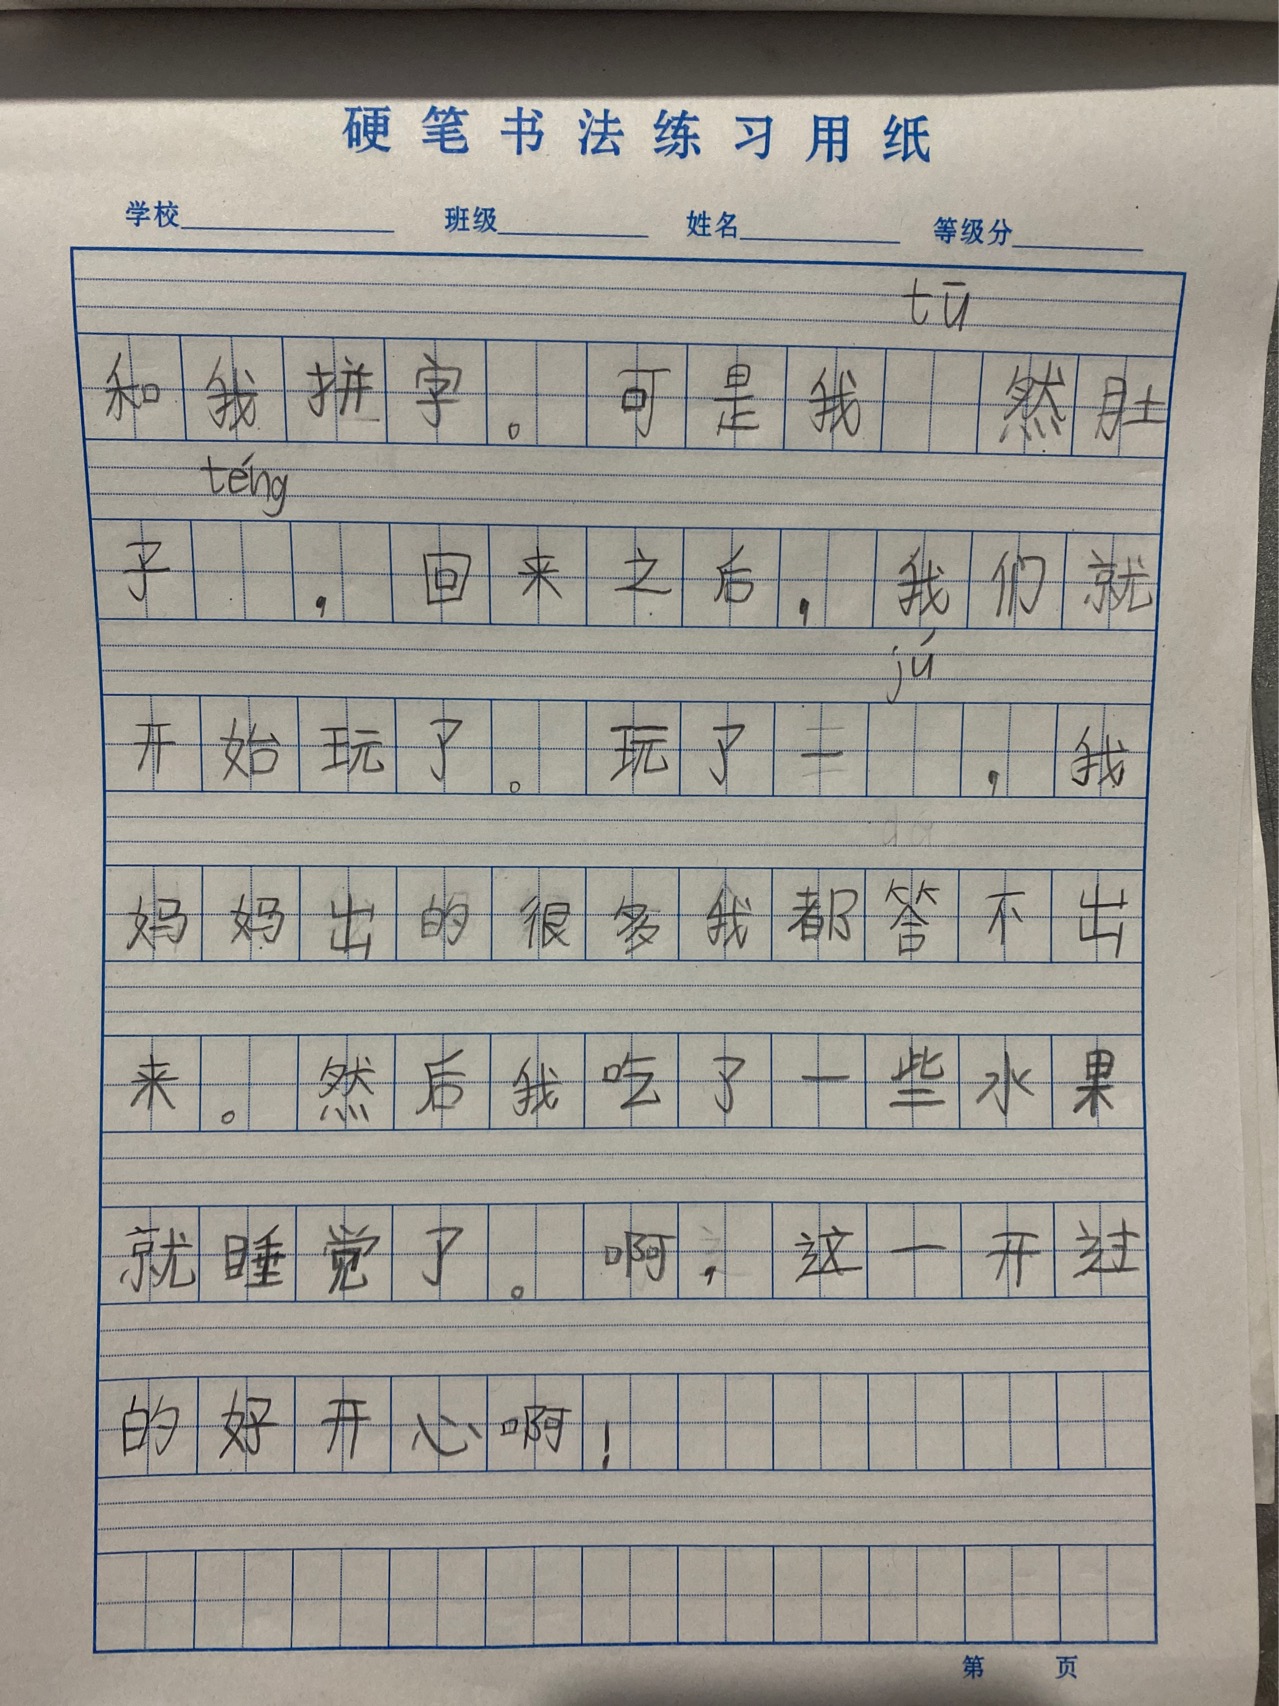 硬笔书法练习用纸
学校 班级 姓名 等级分
tū
和我拼字。可是我 然肚
téng
子 ，回来之后，我们就
jú
开始玩了。玩了一 ，我
妈妈出的很多我都答不出
来。然后我吃了一些水果
就睡觉了。啊，这一开过
的好开心啊！
第 页